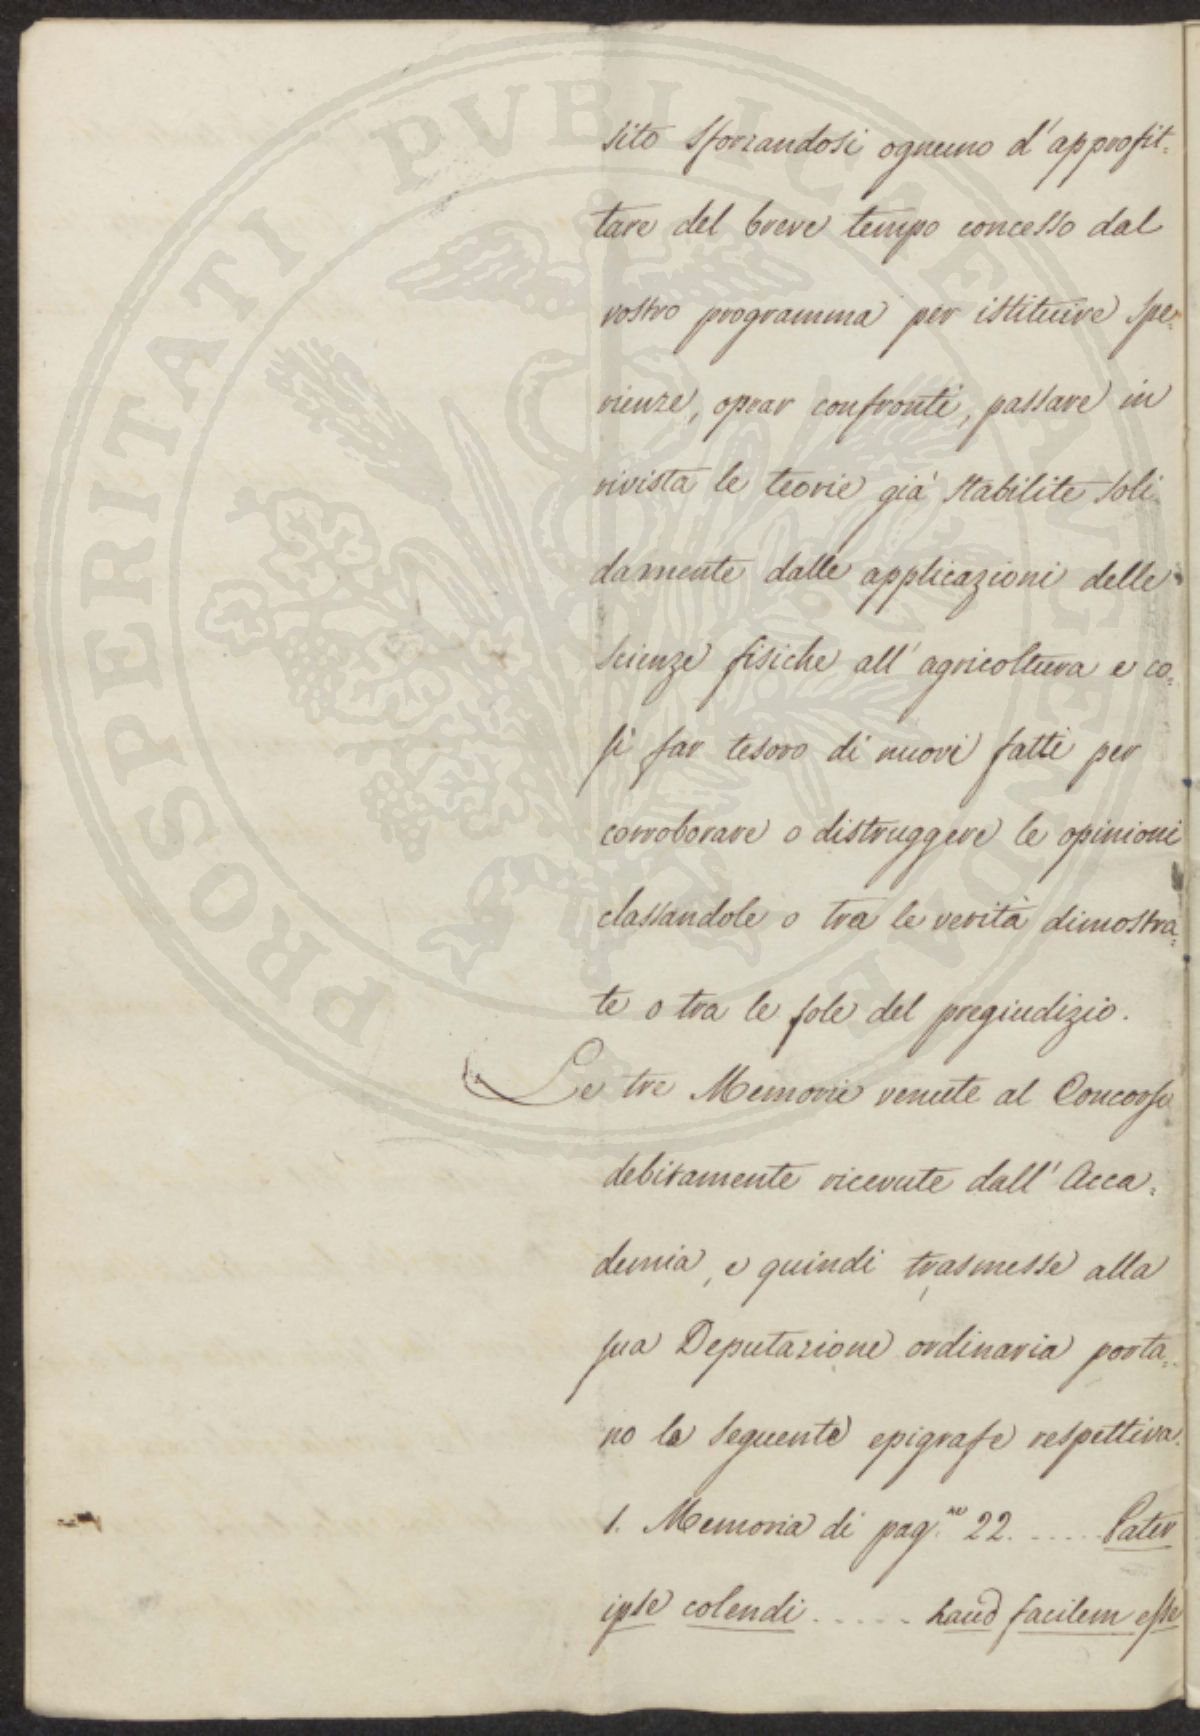 sito sforzandosi ognuno d'approfit=
tare del breve tempo concesso dal
vostro programma per istituire spe=
rienze, oprar confronti, passare in
rivista le teorie già stabilite soli=
damente dalle applicazioni delle
scienze fisiche all'agricoltura e co=
sì far tesoro di nuovi fatti per
corroborare o distruggere le opinioni
classandole o tra le verità dimostra=
te o tra le fole del pregiudizio.
Le tre Memorie venute al Concorso
debitamente ricevute dall'Acca=
demia, e quindi trasmesse alla
sua Deputazione ordinaria porta=
no la seguente epigrafe respettiva.
1. Memoria di pag.ne 22. ..... Pater
ipse colendi ..... haud facilem esse
PROSPERITATI PVBLICAE AVGENDAE